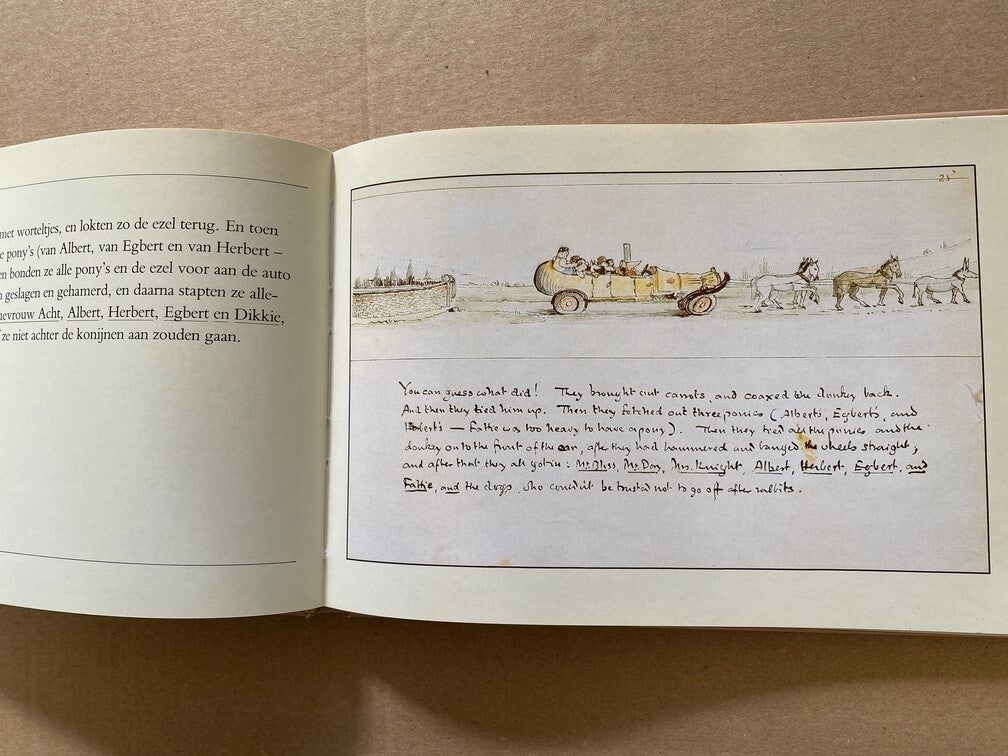 met worteltjes, en lokten zo de ezel terug. En toen
e pony's (van Albert, van Egbert en van Herbert –
en bonden ze alle pony's en de ezel voor aan de auto
geslagen en gehamerd, en daarna stapten ze alle-
nevrouw Acht, Albert, Herbert, Egbert en Dikkie,
ze niet achter de konijnen aan zouden gaan.
You can guess what did! They brought out carrots, and coaxed the donkey back.
And then they tied him up. Then they fetched out three ponies (Albert's, Egbert's, and
Herbert's — Fattie was too heavy to have a pony). Then they tied all the ponies and the
donkey on to the front of the car, after they had hammered and banged the wheels straight;
and after that they all got in: Mr. Bliss, Mr. Day, Mrs. Knight, Albert, Herbert, Egbert, and
Fattie, and the dogs, who couldn't be trusted not to go off after rabbits.